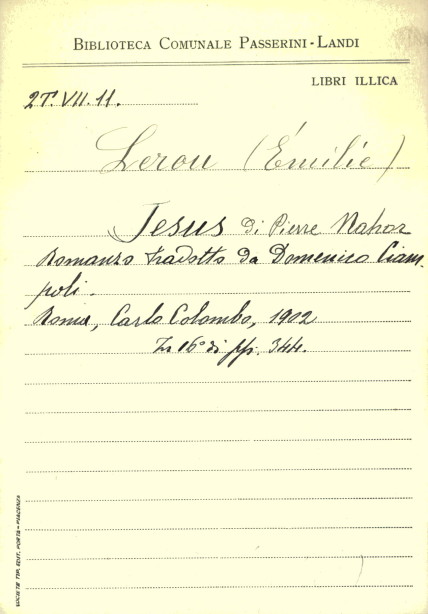 BIBLIOTECA COMUNALE PASSERINI-LANDI
LIBRI ILLICA
2T.VII.11.
Lerou (Émilie)
Jesus di Pierre Nahor
Romanzo tradotto da Domenico Ciam-
poli.
Roma, Carlo Colombo, 1902
In 16° di pp. 344.